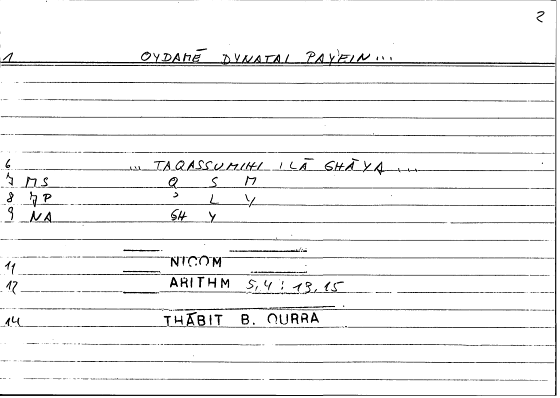 2
1 OYDAMĒ DYNATAI PAYEIN...
6 ... TAQASSUMIHI ILĀ GHĀYA ...
7 MS Q S M
8 7P ʾ L Y
9 NA GH Y
11 NICOM
12 ARITHM 5,4 : 13,15
14 THĀBIT B. QURRA